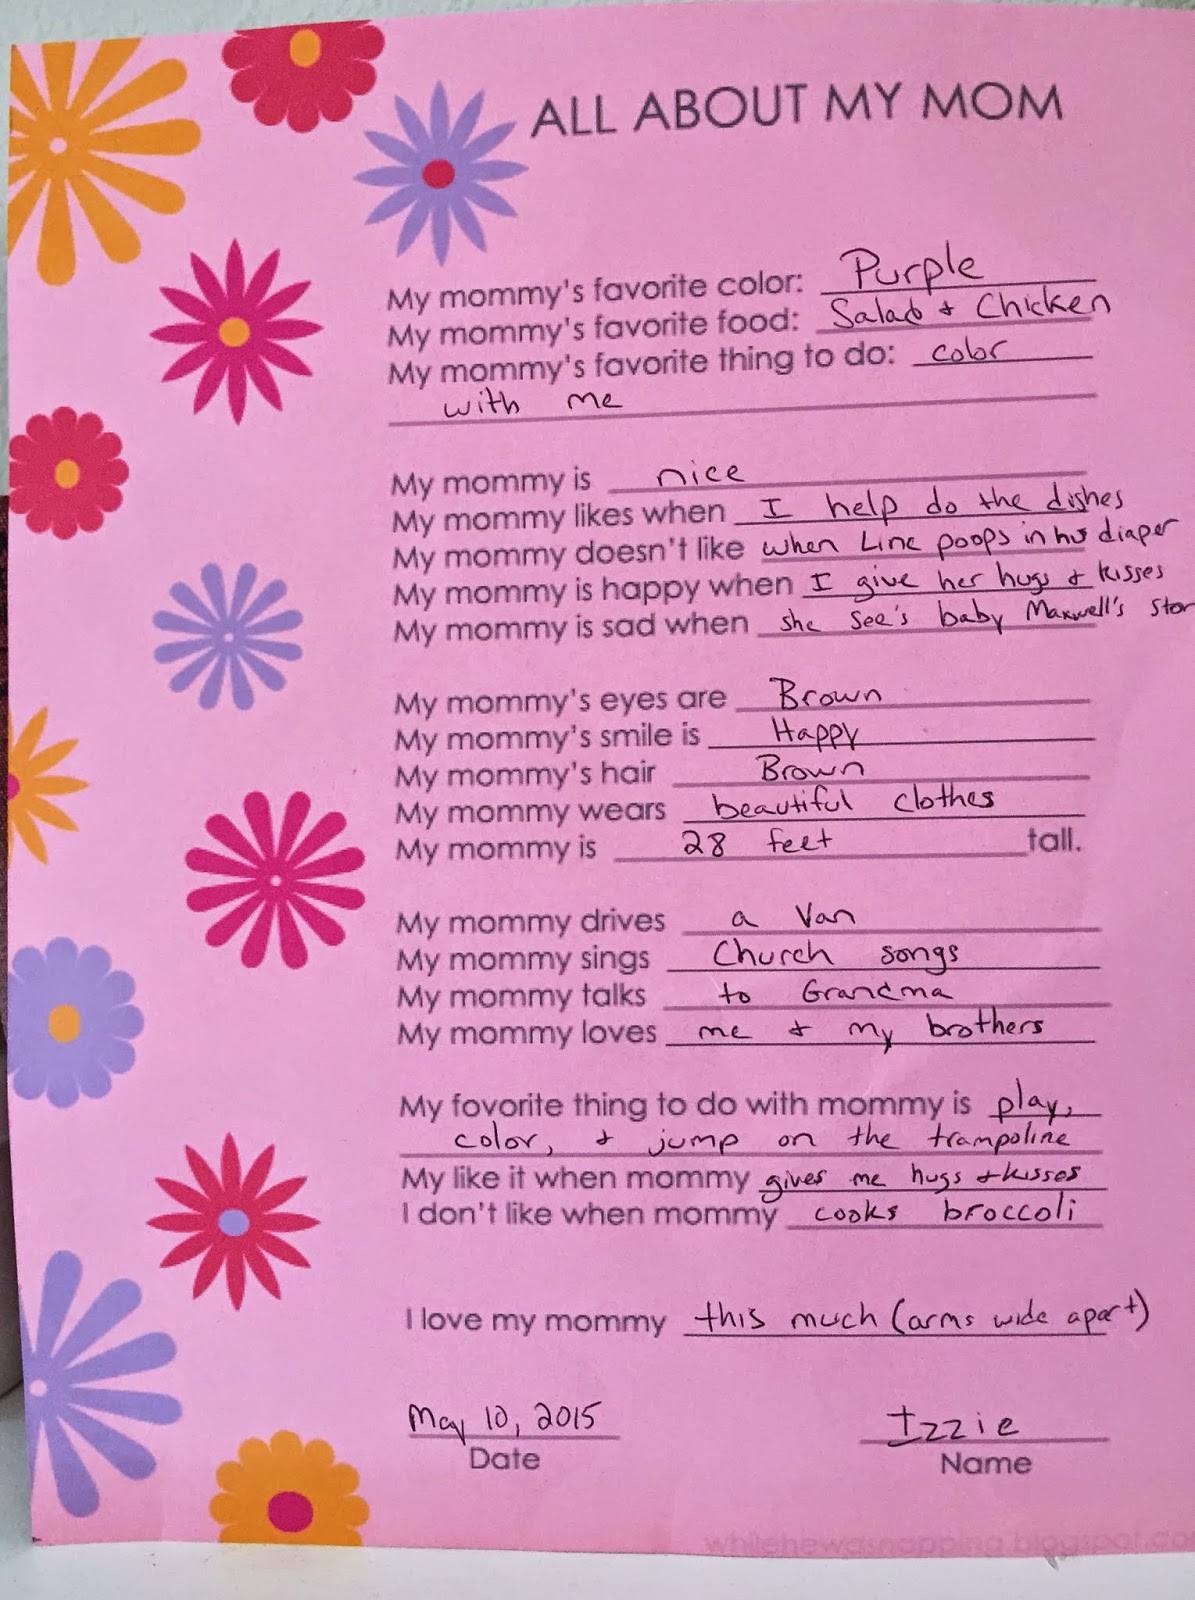 ALL ABOUT MY MOM
My mommy's favorite color: Purple
My mommy's favorite food: Salad & Chicken
My mommy's favorite thing to do: color
with me
My mommy is nice
My mommy likes when I help do the dishes
My mommy doesn't like when Linc poops in his diaper
My mommy is happy when I give her hugs & kisses
My mommy is sad when she see's baby Maxwell's
My mommy's eyes are Brown
My mommy's smile is Happy
My mommy's hair Brown
My mommy wears beautiful clothes
My mommy is 28 feet tall.
My mommy drives a Van
My mommy sings Church songs
My mommy talks to Grandma
My mommy loves me & my brothers
My fovorite thing to do with mommy is play,
color, & jump on the trampoline
My like it when mommy gives me hugs & kisses
I don't like when mommy cooks broccoli
I love my mommy this much (arms wide apart)
May 10, 2015 Izzie
Date Name
whilehewasnapping.blogspot.co